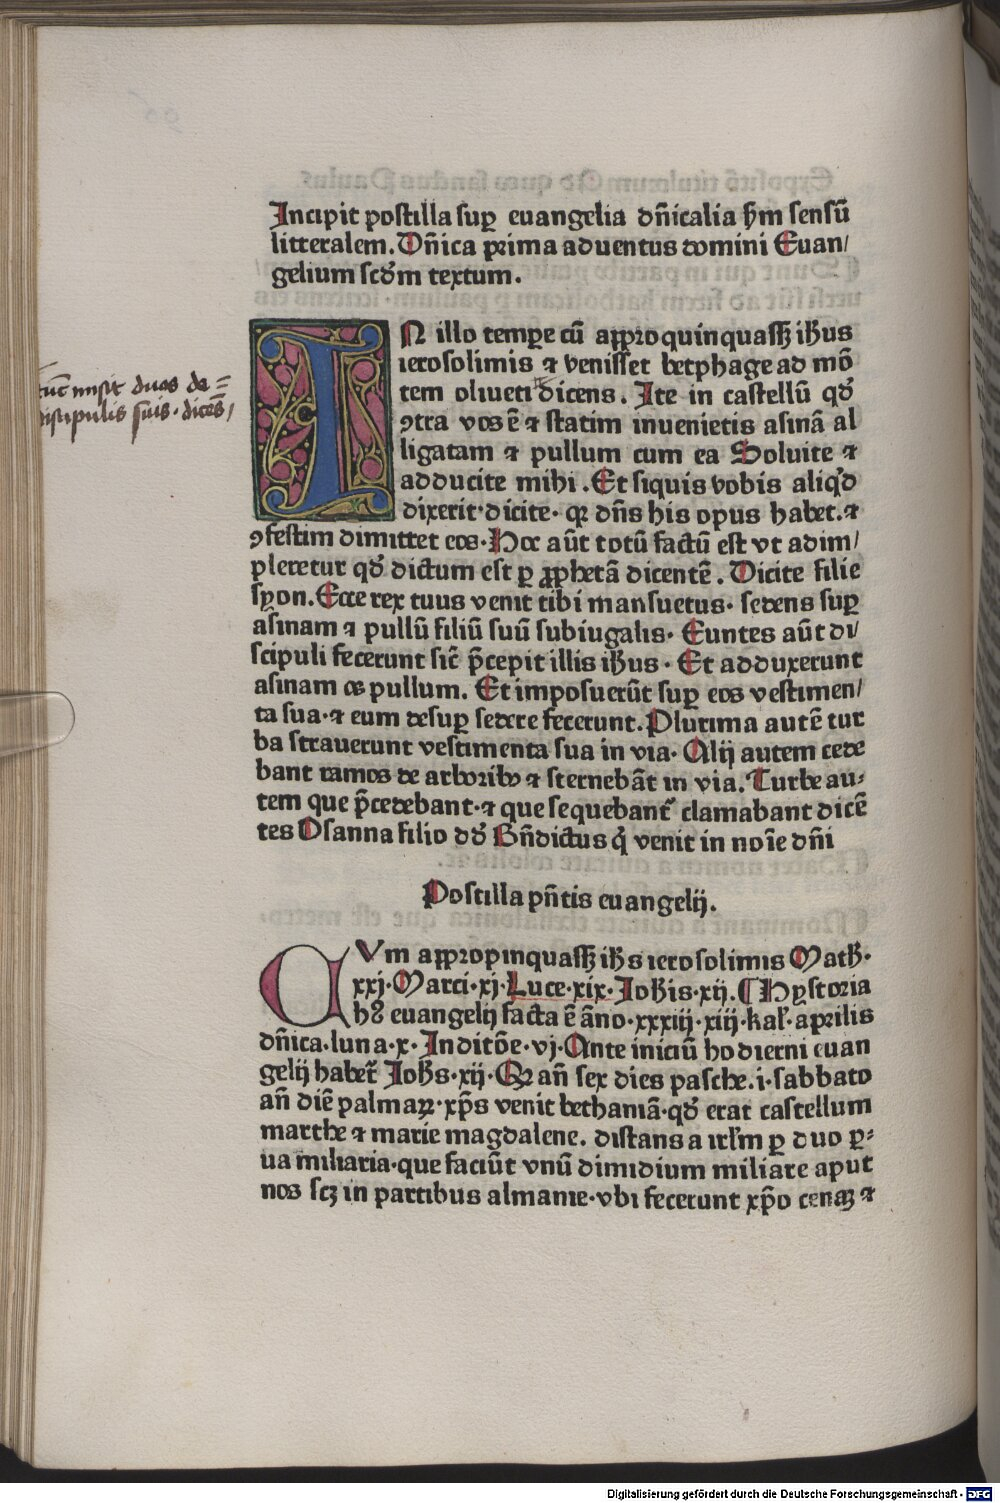 Incipit postilla suꝑ euangelia dn̄icalia ẜm sensū
litteralem. Dn̄ica prima aduentus domini Euan/
gelium scd̄m textum.
IN illo temꝑe cū appꝛoquinquasſꝫ ih̄us
ierosolimis ⁊ venisset betphage ad mō
tem oliueti dicens. Ite in castellū qd̄
ꝯtra vos ē ⁊ statim inuenietis asinā al
ligatam ⁊ pullum cum ea Soluite ⁊
adducite mihi. Et siquis vobis aliqd̄
dixerit·dicite· qꝛ dn̄s his opus habet.⁊
ꝯfestim dimittet eos·Hoc aūt totū factū est vt adim/
pleretur qd̄ dictum est ꝑ ꝓphetā dicentē. Dicite filie
syon. Ecce rex tuus venit tibi mansuetus· sedens suꝑ
asinam ⁊ pullū filiū suū subiugalis· Euntes aūt di/
scipuli fecerunt sic̄ p̄cepit illis ih̄us· Et adduxerunt
asinam et pullum. Et imposuerūt suꝑ eos vestimen/
ta sua·⁊ eum desuꝑ sedere fecerunt. Plurima autē tur
ba strauerunt vestimenta sua in via· Alij autem cede
bant ramos de arboribꝰ ⁊ sternebāt in via. Turbe au⸗
tem que p̄cedebant·⁊ que sequebant᷑ clamabant dicē
tes Osanna filio dd̄ Bn̄dictus q̇ venit in noīe dn̄i
tūc misit duos de=
discipulis suis· dicēs/
Postilla pn̄tis euangelij.
CVm appropinquasſꝫ ih̄s ierosolimis Math̄·
xxj·Marci·xj·Luce·xix·Joh̄is·xij. ¶Hystoria
hꝰ euangelij facta ē āno·xxxiij·xiij·kal̄·aprilis
dn̄ica·luna·x·Inditōe·vj·Ante iniciū hodierni euan
gelij habet᷑ Joh̄s·xij·Qꝛ an̄ sex dies pasche.i·sabbato
an̄ diē palmaꝝ·xp̄s venit bethaniā·qd̄ erat castellum
marthe ⁊ marie magdalene. distans a irl̄m ꝑ duo ꝑ⸗
ua miliaria·que faciūt vnū dimidium miliare aput
nos scꝫ in partibus almanie·vbi fecerunt xp̄o cenaꝫ ⁊
Digitalisierung gefördert durch die Deutsche Forschungsgemeinschaft - DFG